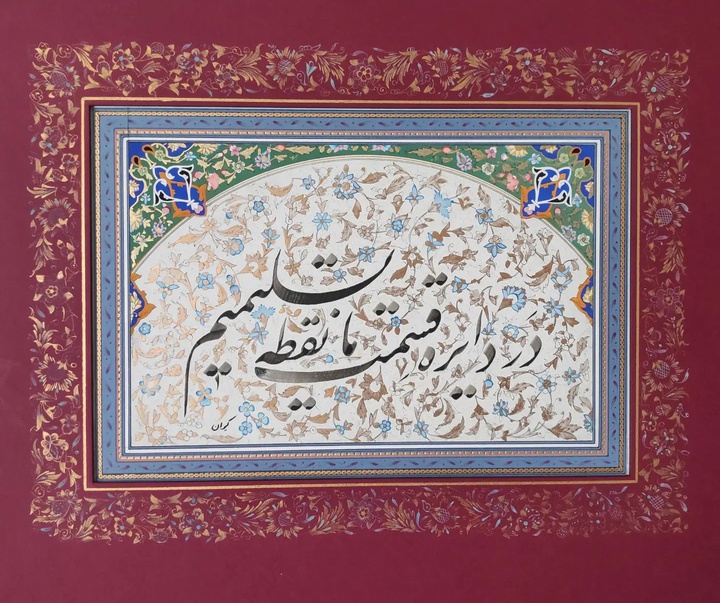 در دایره قسمت ما نقطه تسلیمیم
کیوان